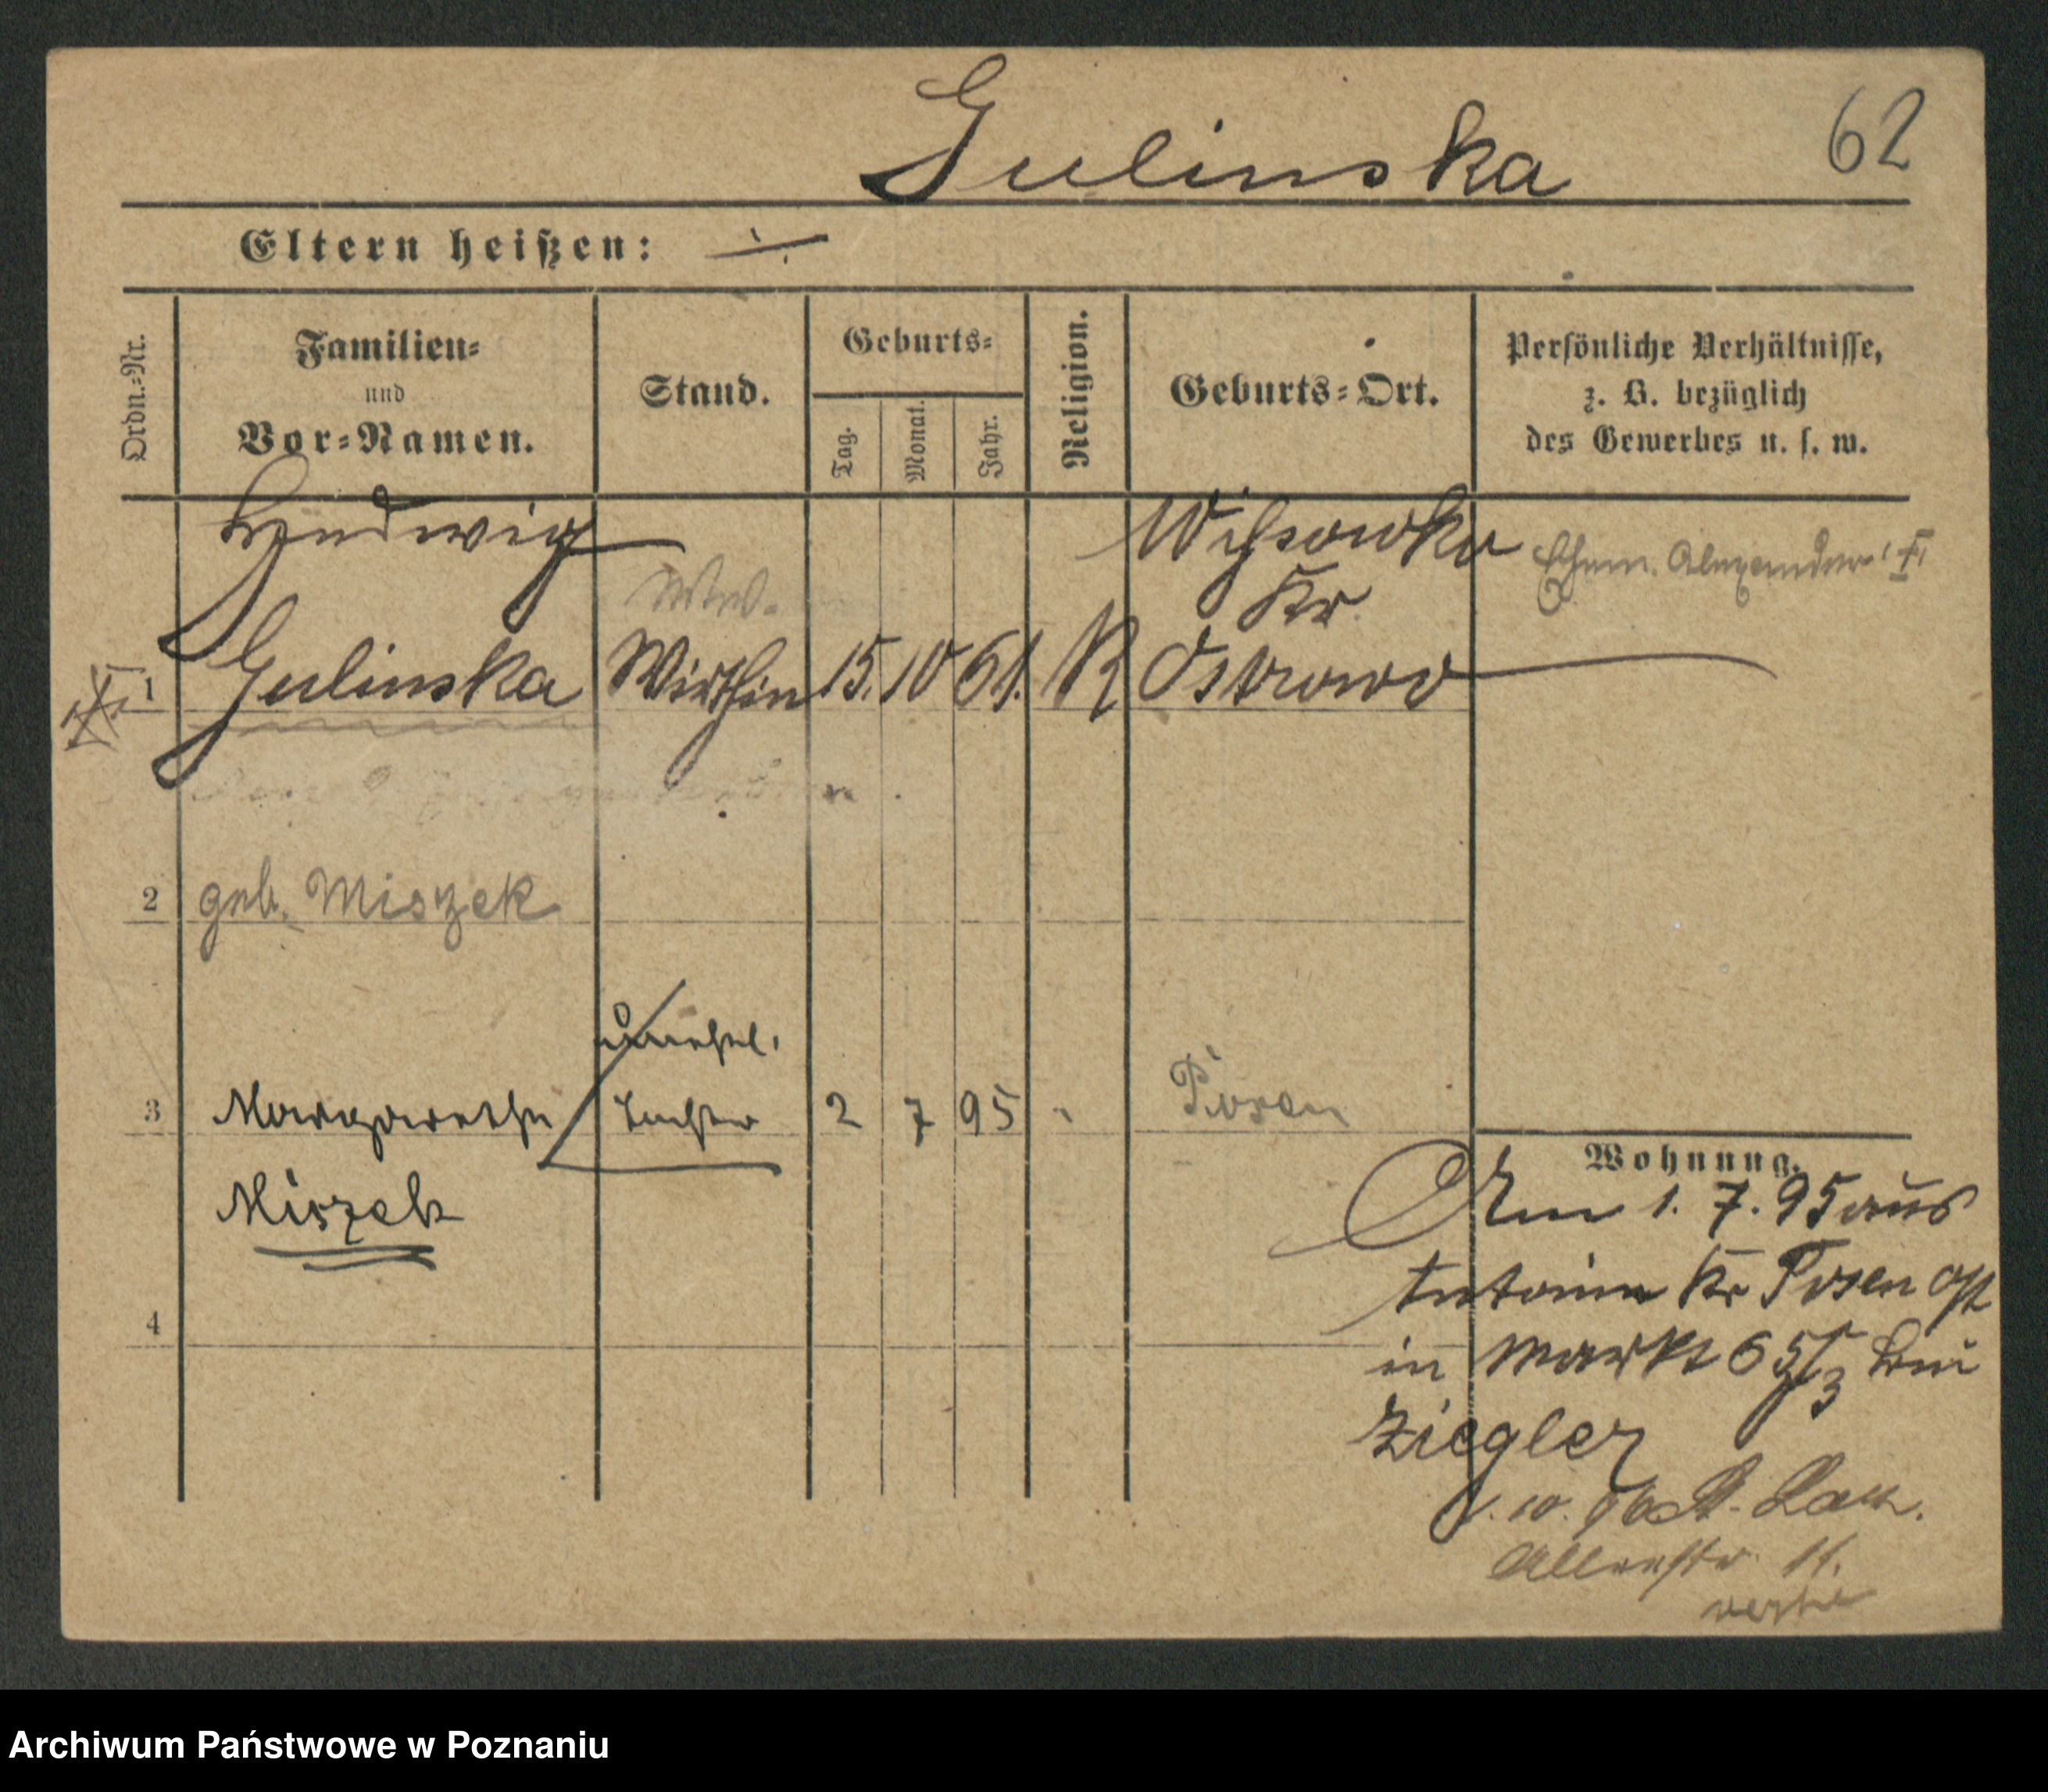 Gulinska
62
Eltern heißen: ./.
Ordn.-Nr.
Familien-
und
Vor-Namen.
Stand.
Geburts-
Tag.
Monat.
Jahr.
Religion.
Geburts-Ort.
Persönliche Verhältnisse,
z. B. bezüglich
des Gewerbes u. s. w.
Hedwig
Gulinska
Ww.
Wirthin
15. 10 61.
K
Kr.
Ostrowo
Ehem. Alexander
1
2
geb. Miszek
3
unehel.
Margarethe
Tochter
2 7 95
Posen
Miszek
4
Wohnung.
Am 1. 7. 95 aus
Kr Posen Ost
in Markt 65/3 bei
Ziegler
11.
Archiwum Państwowe w Poznaniu